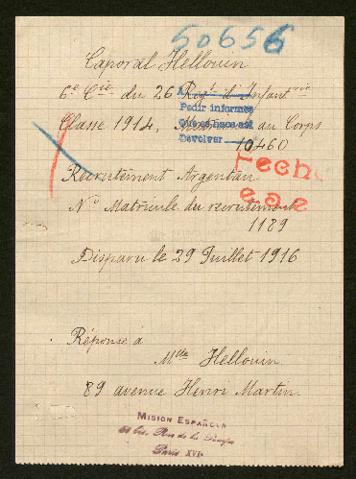 50656
Caporal Hellouin
6e Cie du 26 Regt d'Infantrie
Pedir informes
Classe 1914, au Corps
Devolver
10460
Fecho
Recrutement Argentan
No Matricule du recrutement
1189
Disparu le 29 Juillet 1916
Réponse à
Mlle Hellouin
89 avenue Henri Martin
MISION ESPAÑOLA
Rue de la Pompe
Paris XVIe